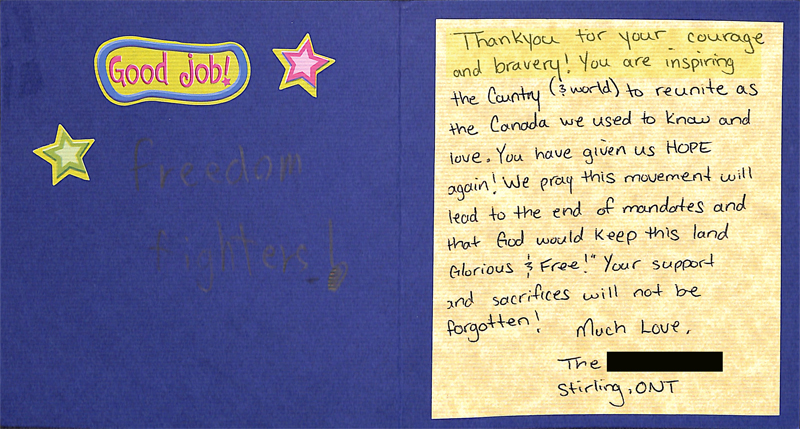 Good job!
Freedom
fighters!
Thankyou for your courage
and bravery! You are inspiring
the Country (& world) to reunite as
the Canada we used to know and
love. You have given us HOPE
again! We pray this movement will
lead to the end of mandates and
that God would keep this land
Glorious & Free!" Your support
and sacrifices will not be
forgotten!
Much Love,
The
Stirling, ONT